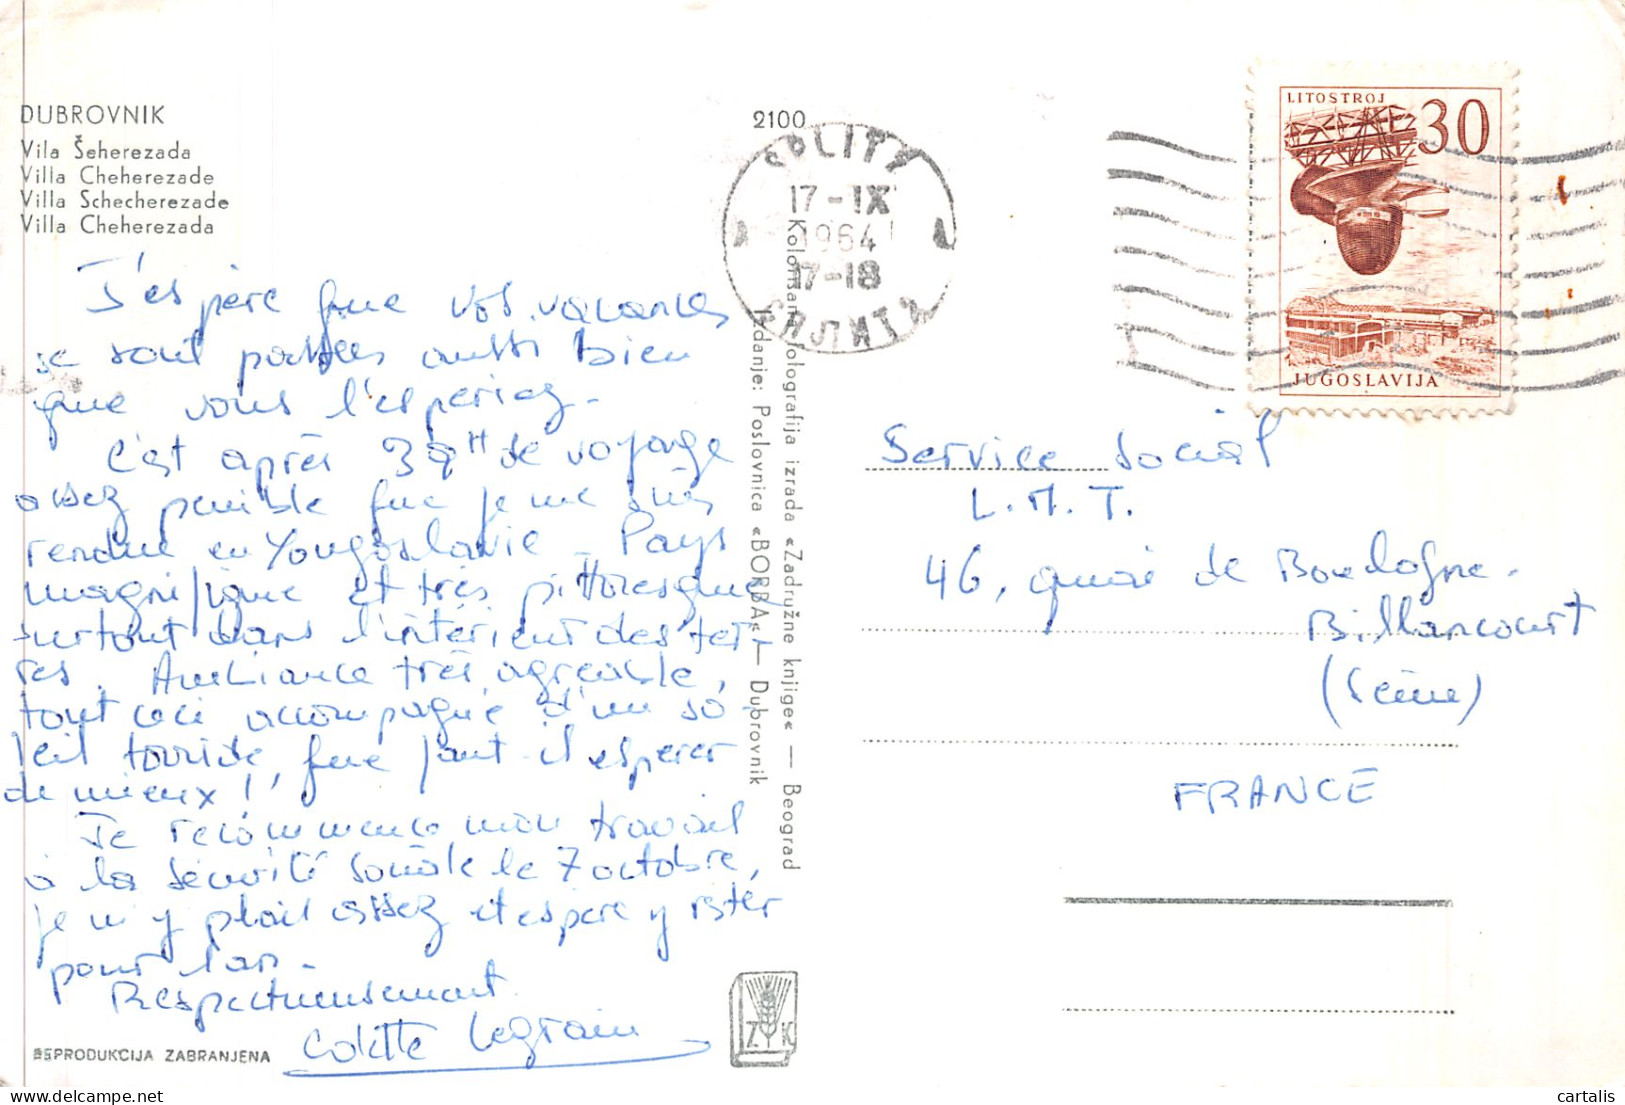 DUBROVNIK
Vila Šeherezada
Villa Cheherezade
Villa Schecherezade
Villa Cheherezada
J'espère que vos vacances
se sont passées aussi bien
que vous l'espériez.
C'est après 39H de voyage
assez pénible que je me suis
rendue en Yougoslavie. Pays
magnifique et très pittoresque
surtout dans l'intérieur des ter-
res. Ambiance très agréable,
tout ceci accompagné d'un so-
leil torride, que faut-il espérer
de mieux !
Je recommence mon travail
à la sécurité sociale le 7 octobre,
je m'y plait assez et espère y rester
pour l'an.
Respectueusement
Colette Legrain
REPRODUKCIJA ZABRANJENA
2100
Kolorisana fotografija izrada «Zadružne knjige« — Beograd
Izdanje: Poslovnica «BORBA« — Dubrovnik
ZK
SPLIT 2
17-IX
1964
17-18
СПЛИТ 2
LITOSTROJ
30
JUGOSLAVIJA
Service Social
L.M.T.
46, quai de Boulogne.
Billancourt
(Seine)
FRANCE
cartalis